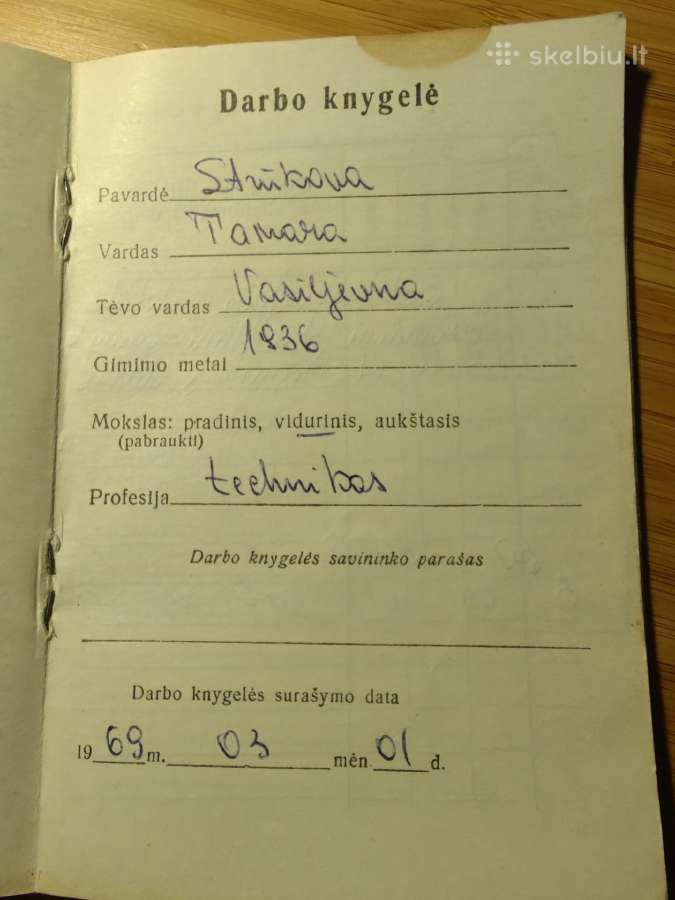 skelbiu.lt
Darbo knygelė
Pavardė
Vardas Tamara
Tėvo vardas Vasiljevna
Gimimo metai 1936
Mokslas: pradinis, vidurinis, aukštasis
(pabraukti)
Profesija technikas
Darbo knygelės savininko parašas
Darbo knygelės surašymo data
1969 m. 03 mėn. 01 d.